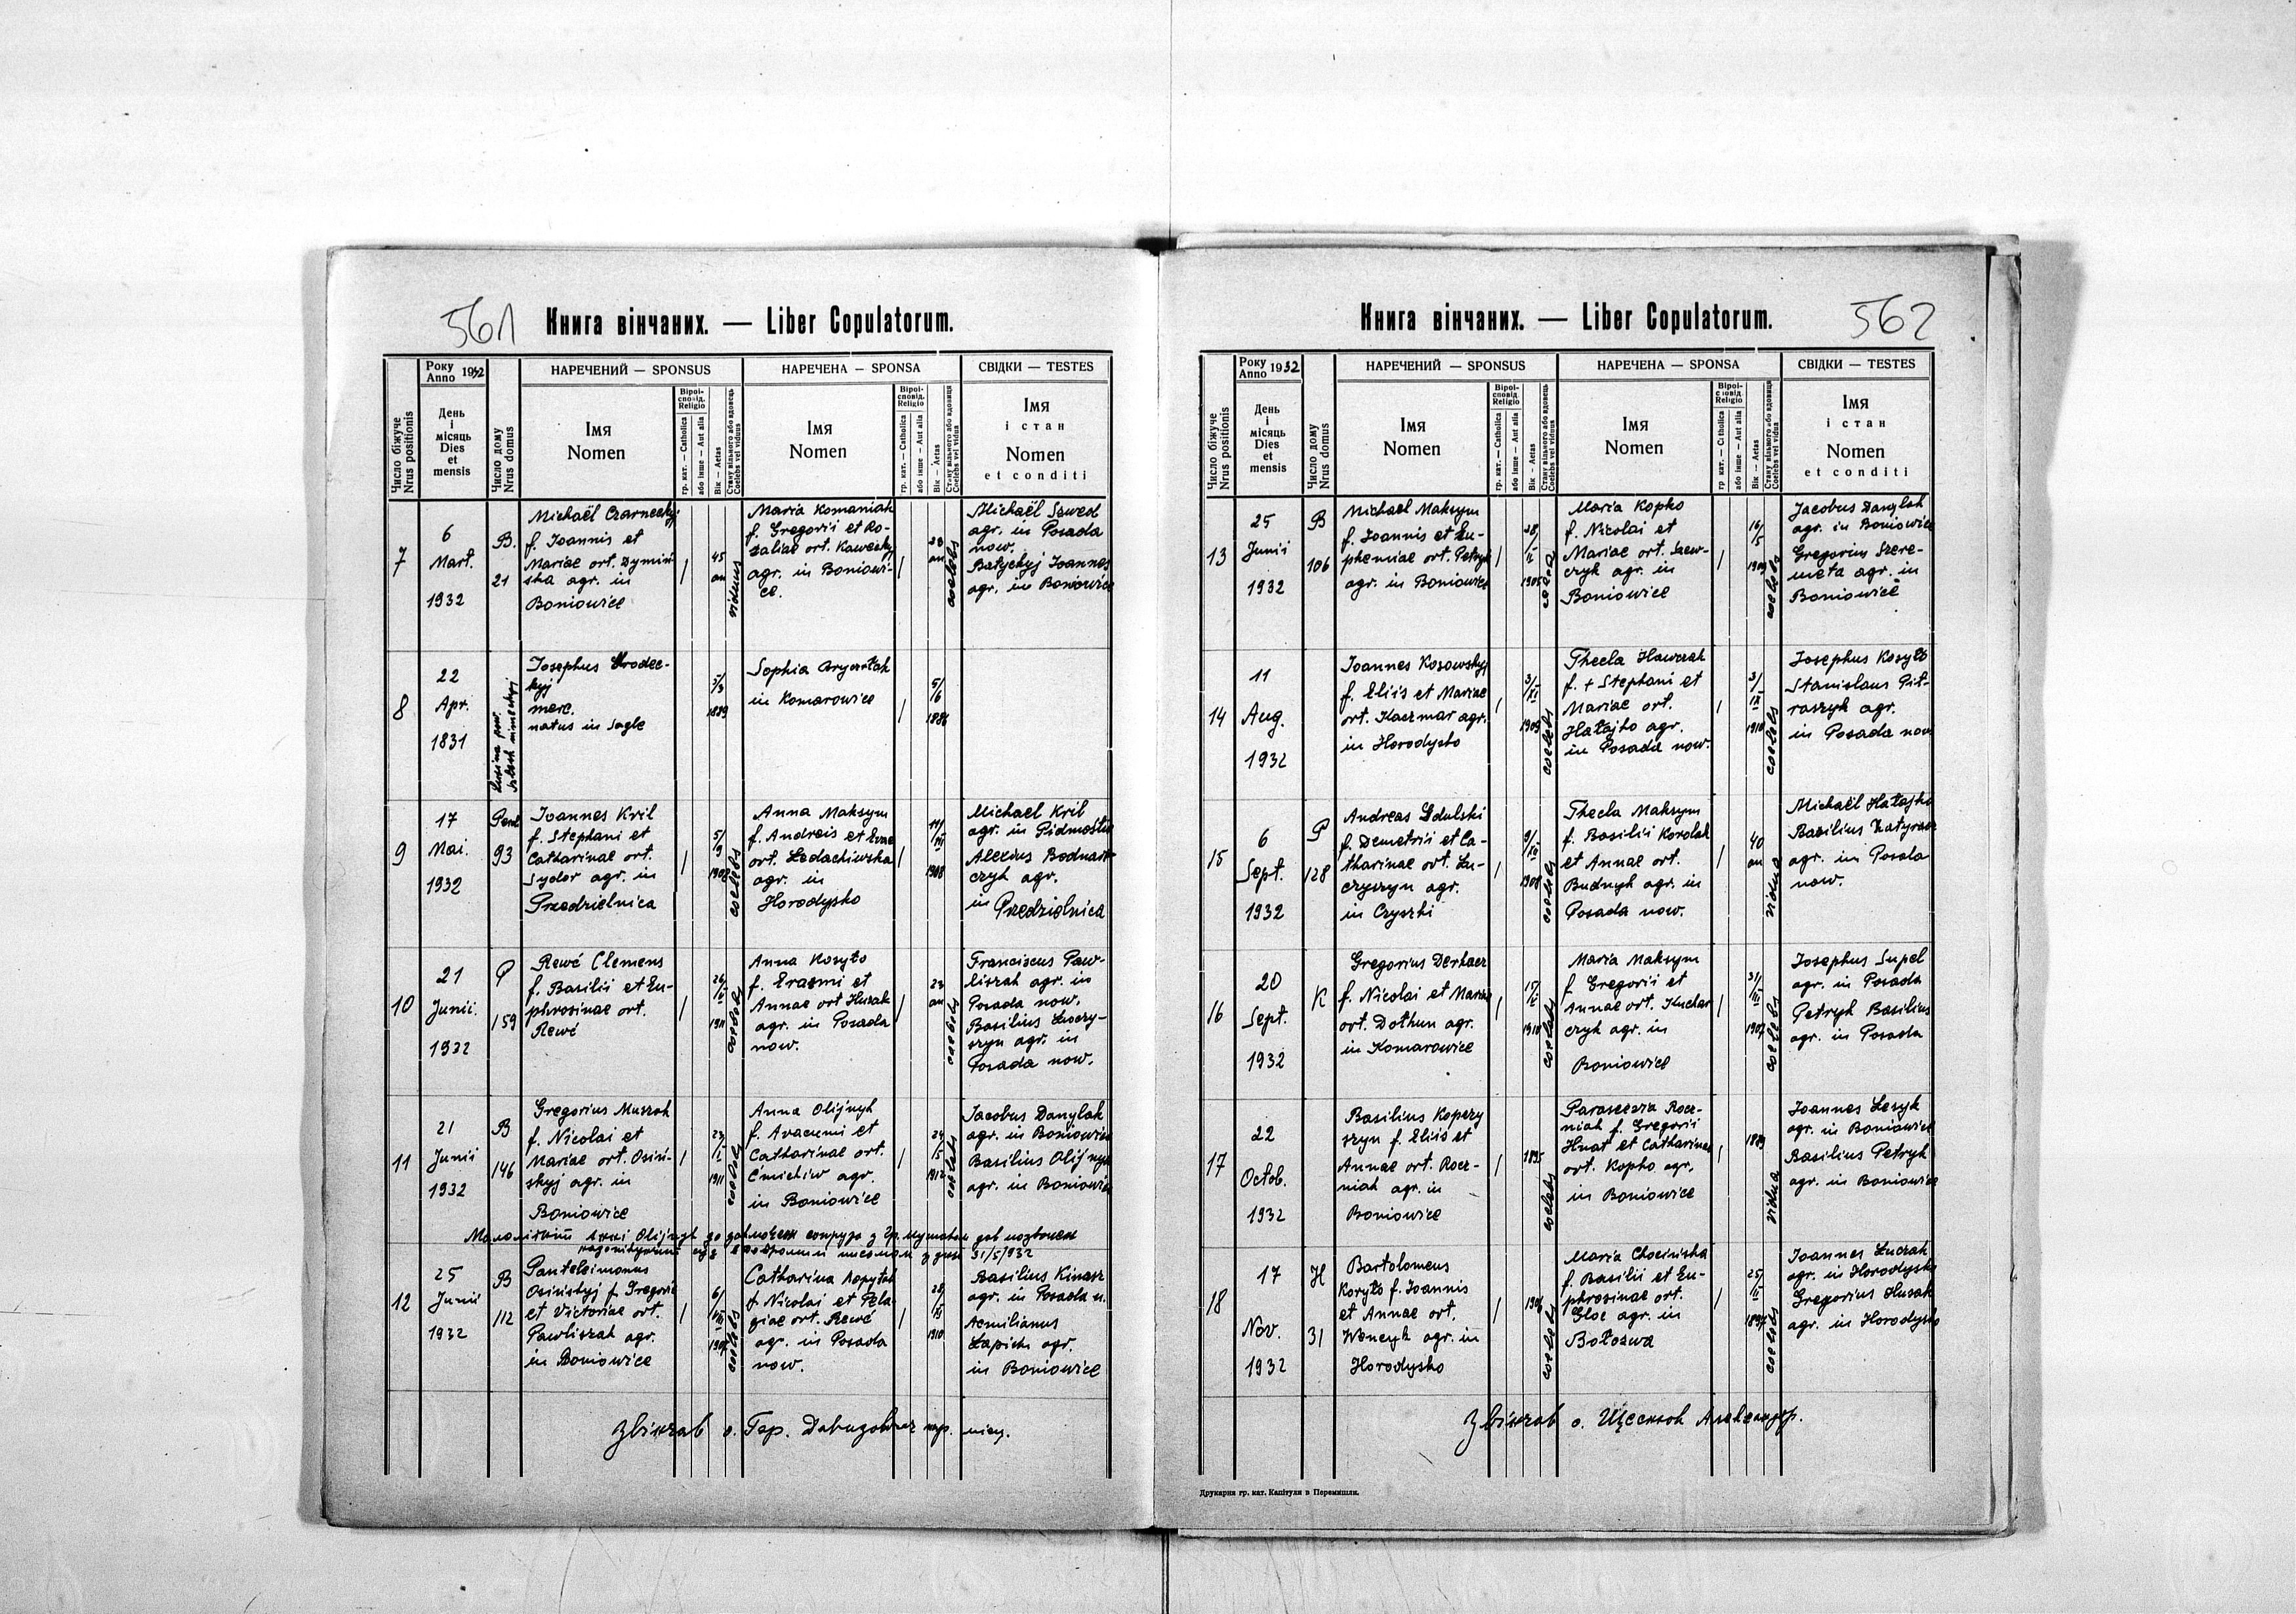 561
Книга вінчаних. — Liber Copulatorum.
Число біжуче
Nrus positionis
Року
Anno 1932
День
і
місяць
Dies
et
mensis
Число дому
Nrus domus
НАРЕЧЕНИЙ — SPONSUS
Імя
Nomen
Віроі-
сповід.
Religio
гр. кат. — Catholica
або інше — Aut alia
Вік — Aetas
Стану вільного або вдовець
Coelebs vel viduus
НАРЕЧЕНА — SPONSA
Імя
Nomen
Віроі-
сповід.
Religio
гр. кат. — Catholica
або інше — Aut alia
Вік — Aetas
Стану вільного або вдовиця
Coelebs vel vidua
СВІДКИ — TESTES
Імя
і стан
Nomen
et conditi
7
6
Mart.
1932
B.
21
Michaël Czarneckyj
f. Joannis et
Mariae ort. Dymiń-
ska agr. in
Boniowice
45
an
viduus
Maria Komaniak
f. Gregorii et Ro-
zaliae ort. Kawecky
agr. in Boniowi-
ce.
28
an
coelebs
Michaël Szwed
agr. in Posada
now.
Batyckyj Joannes
agr. in Boniowice
8
22
Apr.
1831
Josephus
kyj
merc.
natus in Jogle
3/3
1889
Sophia
in Komarowice
5/6
1886
9
17
Mai.
1932
93
Joannes Kril
f. Stephani et
Catharinae ort.
Sydor agr. in
Przedzielnica
5/9
1902
coelebs
Anna Maksym
f. Andreis et Evae
ort. Ledachiwska
agr. in
Horodysko
11/VII
1908
Michael Kril
agr. in Pidmostie
Alexius Bodnar-
czyk agr.
in Przedzielnica
10
21
Junii.
1932
P
159
Rewć Clemens
f. Basilii et Eu-
phrosinae ort.
Rewć
26/IV
1911
coelebs
Anna Kosyło
f. Erazmi et
Annae ort Husak
agr. in Posada
now.
23
an
coelebs
Franciscus Paw-
liszak agr. in
Posada now.
Basilius Luczy-
szyn agr. in
Posada now.
11
21
Junii
1932
B
146
Gregorius Muszak
f. Nicolai et
Mariae ort. Osiń-
skyj agr. in
Boniowice
23/I
1911
coelebs
Anna Olijnyk
f. Avacumi et
Catharinae ort.
Ćmichiw agr.
in Boniowice
24/5
1912
coelebs
Jacobus Danylak
agr. in Boniowice
Basilius Olijnyk
agr. in Boniowice
31/5/932
12
25
Junii
1932
B
112
Panteleimonus
Osińskyj f. Gregorii
et Victoriae ort.
Pawliszak agr.
in Boniowice
6/VIII
1907
coelebs
Catharina Kopytak
f. Nicolai et Pela-
giae ort. Rewć
agr. in Posada
now.
28/III
1910
Basilius Kinasz
agr. in Posada n.
Aemilianus
Łapich agr.
in Boniowice
Звінчав о. Гер. Давидович пар. місц.
562
Книга вінчаних. — Liber Copulatorum.
Число біжуче
Nrus positionis
Року
Anno 1932
День
і
місяць
Dies
et
mensis
Число дому
Nrus domus
НАРЕЧЕНИЙ — SPONSUS
Імя
Nomen
Віроі-
сповід.
Religio
гр. кат. — Catholica
або інше — Aut alia
Вік — Aetas
Стану вільного або вдовець
Coelebs vel viduus
НАРЕЧЕНА — SPONSA
Імя
Nomen
Віроі-
сповід.
Religio
гр. кат. — Catholica
або інше — Aut alia
Вік — Aetas
Стану вільного або вдовиця
Coelebs vel vidua
СВІДКИ — TESTES
Імя
і стан
Nomen
et conditi
13
25
Junii
1932
B
106
Michael Maksym
f. Joannis et Eu-
phemiae ort. Petryk
agr. in Boniowice
28/II
1905
Maria Kopko
f. Nicolai et
Mariae ort. Szew-
czyk agr. in
Boniowice
16/5
1909
coelebs
Jacobus Danylak
agr. in Boniowice
Gregorius Szere-
meta agr. in
Boniowice
14
11
Aug.
1932
Joannes Kosowskyj
f. Eliis et Mariae
ort. Kaczmar agr.
in Horodysko
3/XI
1909
coelebs
Thecla Hawczak
f. + Stephani et
Mariae ort.
Hałajko agr.
in Posada now.
3/IX
1910
coelebs
Josephus Kosyło
Stanislaus Pit-
raszyk agr.
in Posada now.
15
6
Sept.
1932
P
128
Andreas Zdulski
f. Demetrii et Ca-
tharinae ort. Lu-
czyszyn agr.
in Czyszki
9/XII
1908
coelebs
Thecla Maksym
f. Basilii Korolak
et Annae ort.
Budnyk agr. in
Posada now.
40
an
vidua
Michaël Hałajko
Basilius
agr. in Posada
now.
16
20
Sept.
1932
K
Gregorius Derkacz
f. Nicolai et Mariae
ort. Dothun agr.
in Komarowice
15/II
1910
coelebs
Maria Maksym
f Gregorii et
Annae ort. Kuchar
czyk agr. in
Boniowice
31/III
1907
coelebs
Josephus Supel
agr. in Posada
Petryk Basilius
agr. in Posada
17
22
Octob.
1932
Basilius Kopczy
szyn f. Eliis et
Annae ort. Rocz-
niak agr. in
Boniowice
coelebs
Parascevia Rocz-
niak f. Gregorii
Hnat et Catharinae
ort. Kopko agr.
in Boniowice
1889
vidua
Joannes Lesyk
agr. in Boniowice
Basilius Petryk
agr. in Boniowice
18
17
Nov.
1932
H
31
Bartolomeus
Koryto f. Joannis
et Annae ort.
Wencyk agr. in
Horodysko
1906
coelebs
Maria Chocińska
f. Basilii et Eu-
phrosinae ort.
Gloc agr. in
Bołozwa
25/II
1897
coelebs
Joannes Luczak
agr. in Horodysko
Gregorius Husak
agr. in Horodysko
Звінчав о. Щеснюк Александр.
Друкарня гр. кат. Капітули в Перемишли.